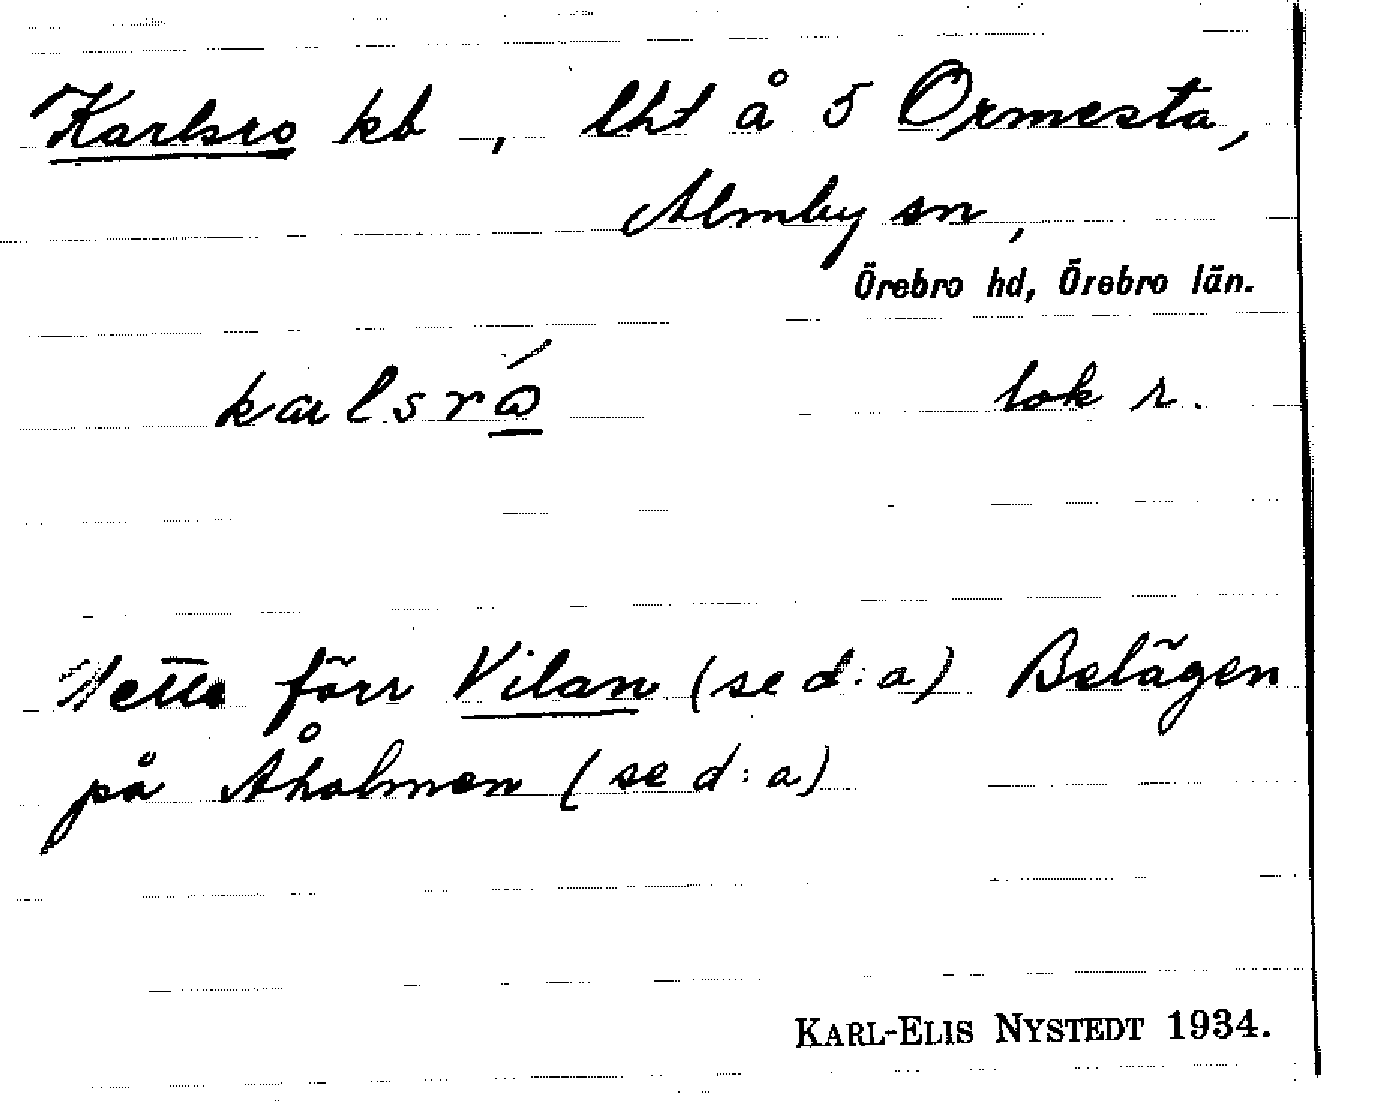 Karlsro kb, lht å 5 Ormesta,
Almby sn,
Örebro hd, Örebro län.
karlsró lok r.
Hette förr Vilan (se d:a) Belägen
på Åholmen (se d:a)
KARL-ELIS NYSTEDT 1934.